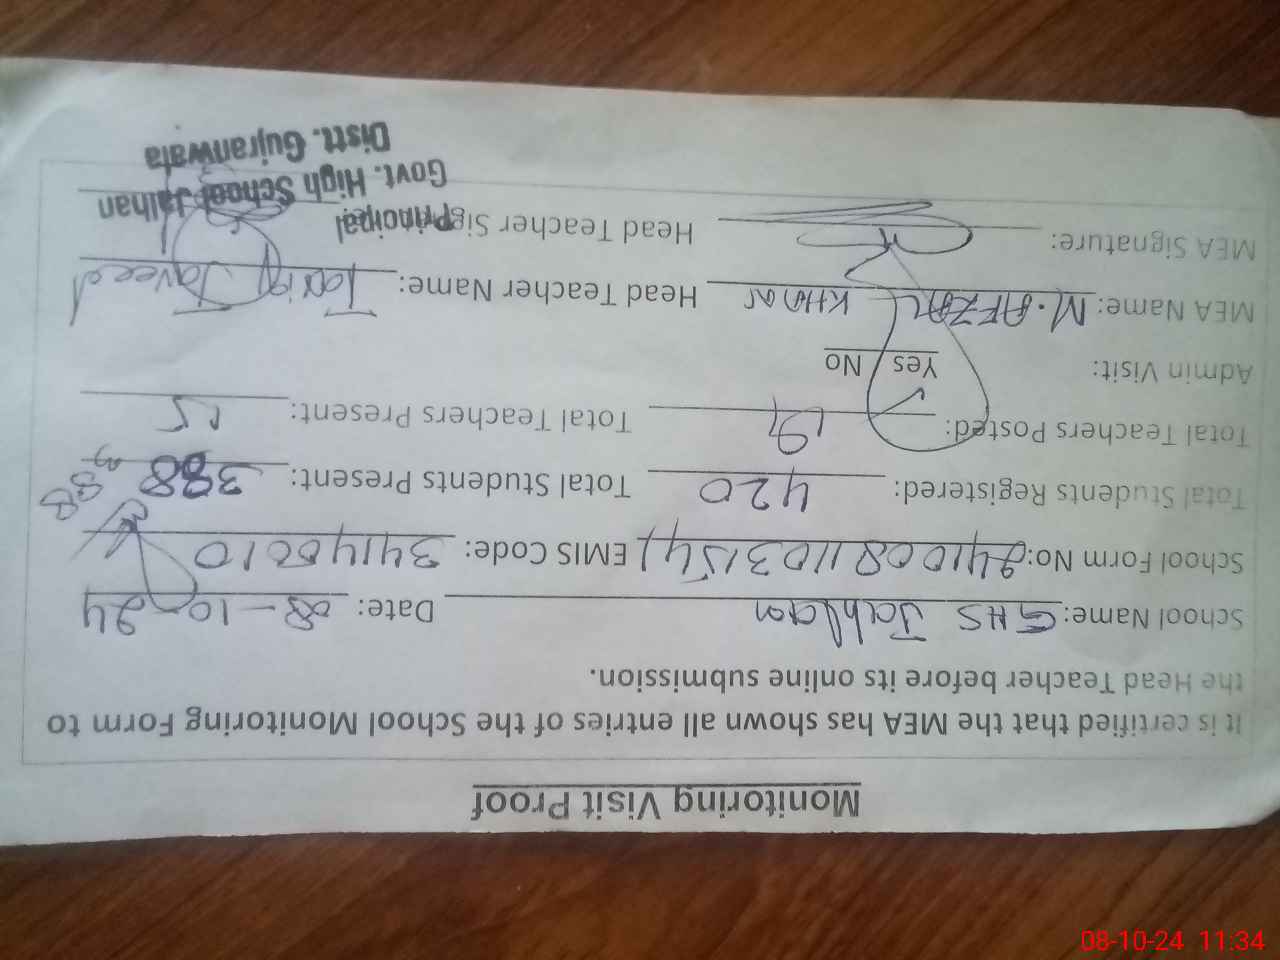 Monitoring Visit Proof
It is certified that the MEA has shown all entries of the School Monitoring Form to
the Head Teacher before its online submission.
School Name: GHS Jahlan Date: 08-10-24
School Form No: 24100811031541 EMIS Code: 34140010
Total Students Registered: 420 Total Students Present: 388
Total Teachers Posted: 19 Total Teachers Present: 15
Admin Visit: Yes / No
MEA Name: M. AFZAL KHAN Head Teacher Name: Tariq Javeed
MEA Signature: Head Teacher Sig
Principal
Govt. High School Jalhan
Distt. Gujranwala
08-10-24 11:34